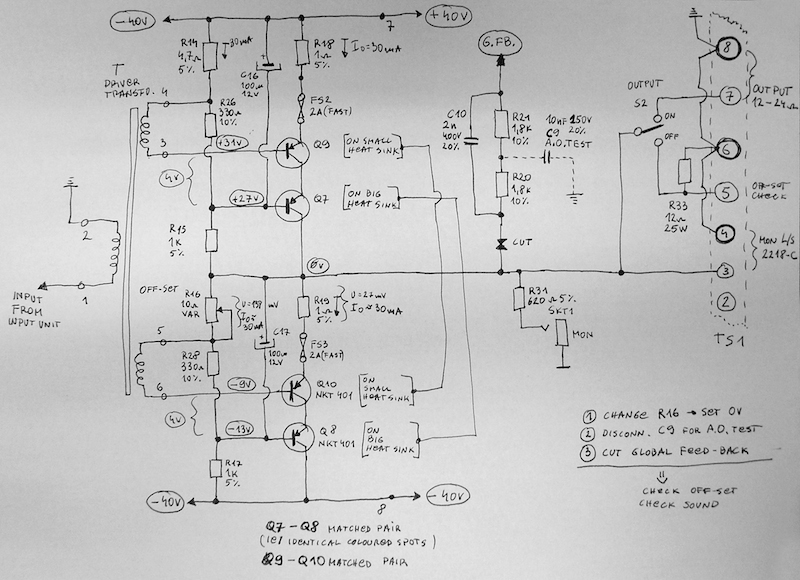 -40V
7
+40V
R14
4,7Ω
5%
30mA
C16
100μ
12V
R18
1Ω
5%
I₀=30mA
FS2
2A (FAST)
G.FB.
T
DRIVER
TRANSFO.
4
3
4V
R26
330Ω
10%
+31V
Q9
[ON SMALL
HEAT SINK]
+27V
Q7
[ON BIG
HEAT SINK]
C10
2n
400V
20%
R21
1,8K
10%
10nF 150V
20%
C9
A.O. TEST
R20
1,8K
10%
CUT
OUTPUT
S2
ON
OFF
R33
12Ω
25W
8
7
6
5
4
3
2
TS1
OUTPUT
12-24Ω
OFF-SET
CHECK
MON L/S
2218-C
2
1
INPUT
FROM
INPUT UNIT
R15
1K
5%
0V
OFF-SET
R16
10Ω
VAR
U=138 mV
I₀≈
30mA
C17
100μ
12V
R19
1Ω
5%
U=27mV
I₀≈30mA
FS3
2A (FAST)
R31
620Ω 5%
SKT1
MON
5
6
4V
R28
330Ω
10%
-9V
Q10
NKT401
[ON
SMALL
HEAT SINK]
-13V
Q8
NKT401
[ON
BIG
HEAT SINK]
R17
1K
5%
-40V
8
-40V
1 CHANGE R16 → SET 0V
2 DISCONN. C9 FOR A.O. TEST
3 CUT GLOBAL FEED-BACK
⇓
CHECK OFF-SET
CHECK SOUND
Q7-Q8 MATCHED PAIR
(IE/ IDENTICAL COLOURED SPOTS)
Q9-Q10 MATCHED PAIR